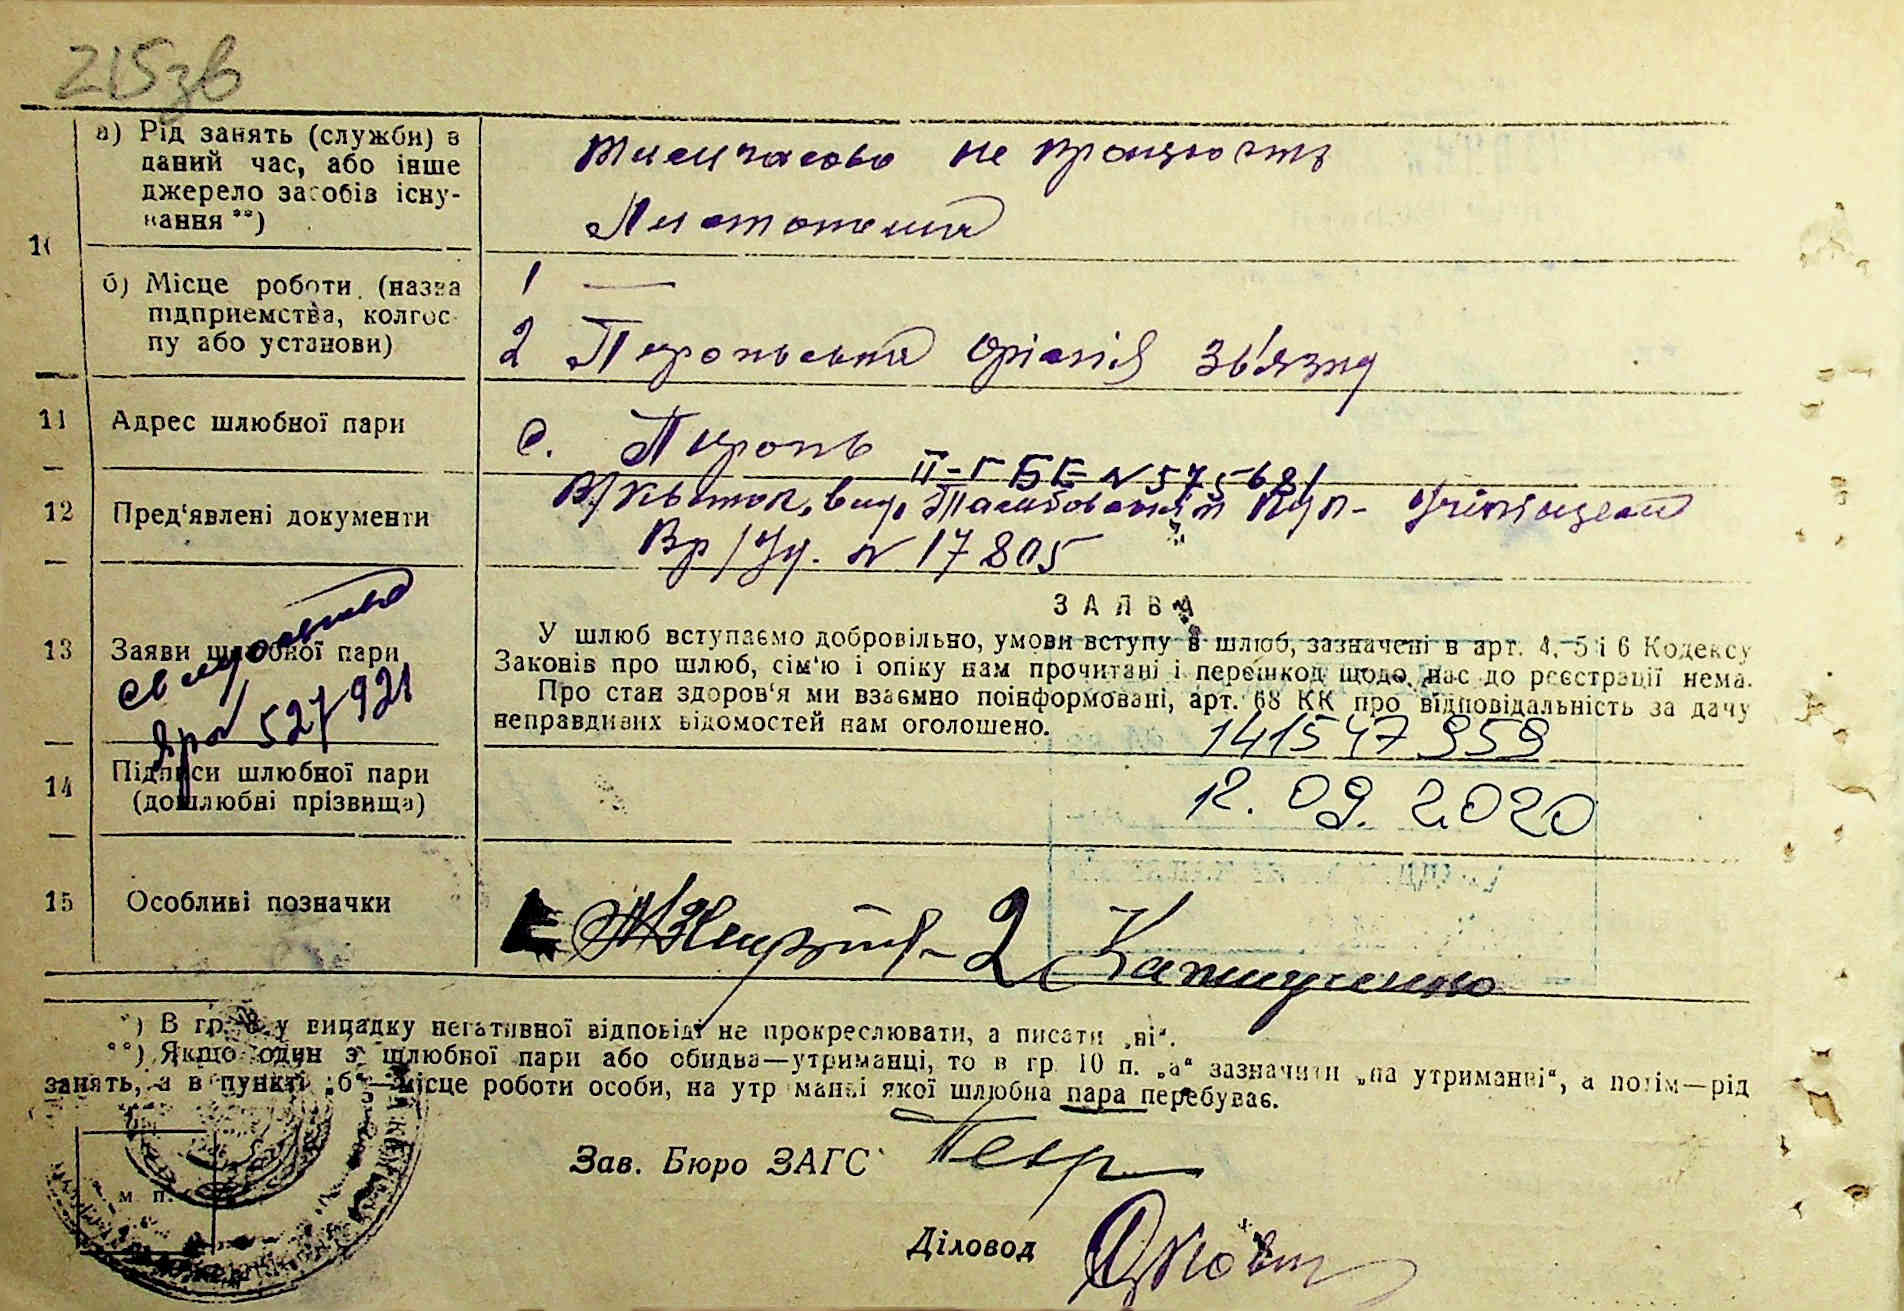 215зв
а) Рід занять (служби) в
даний час, або інше
джерело засобів існу-
вання **)
Тимчасово не працюють
Листоноша
10
б) Місце роботи (назва
підприємства, колгос-
пу або установи)
1 —
2 Пиропьська філія Зв'язку
11 Адрес шлюбної пари
с. Пиропь
12 Пред'явлені документи
ІІ-Г БЕ N 575681
В/квиток, вид.
Вр/Уд. N 17805
13 Заяви шлюбної пари
свидоцтво
527921
ЗАЯВА
У шлюб вступаємо добровільно, умови вступу в шлюб, зазначені в арт. 4, 5 і 6 Кодексу
Законів про шлюб, сім'ю і опіку нам прочитані і перешкод щодо нас до реєстрації нема.
Про стан здоров'я ми взаємно поінформовані, арт. 68 КК про відповідальність за дачу
неправдивих відомостей нам оголошено.
141547959
12.09.2020
14 Підписи шлюбної пари
(дошлюбні прізвища)
15 Особливі позначки
2
*) В гр. 8 у випадку негативної відповіді не прокреслювати, а писати „ні“.
**) Якщо один з шлюбної пари або обидва—утриманці, то в гр. 10 п. „а“ зазначити „на утриманні“, а потім—рід
занять, а в пункті „б“—місце роботи особи, на утриманні якої шлюбна пара перебуває.
Зав. Бюро ЗАГС
м. п.
Діловод